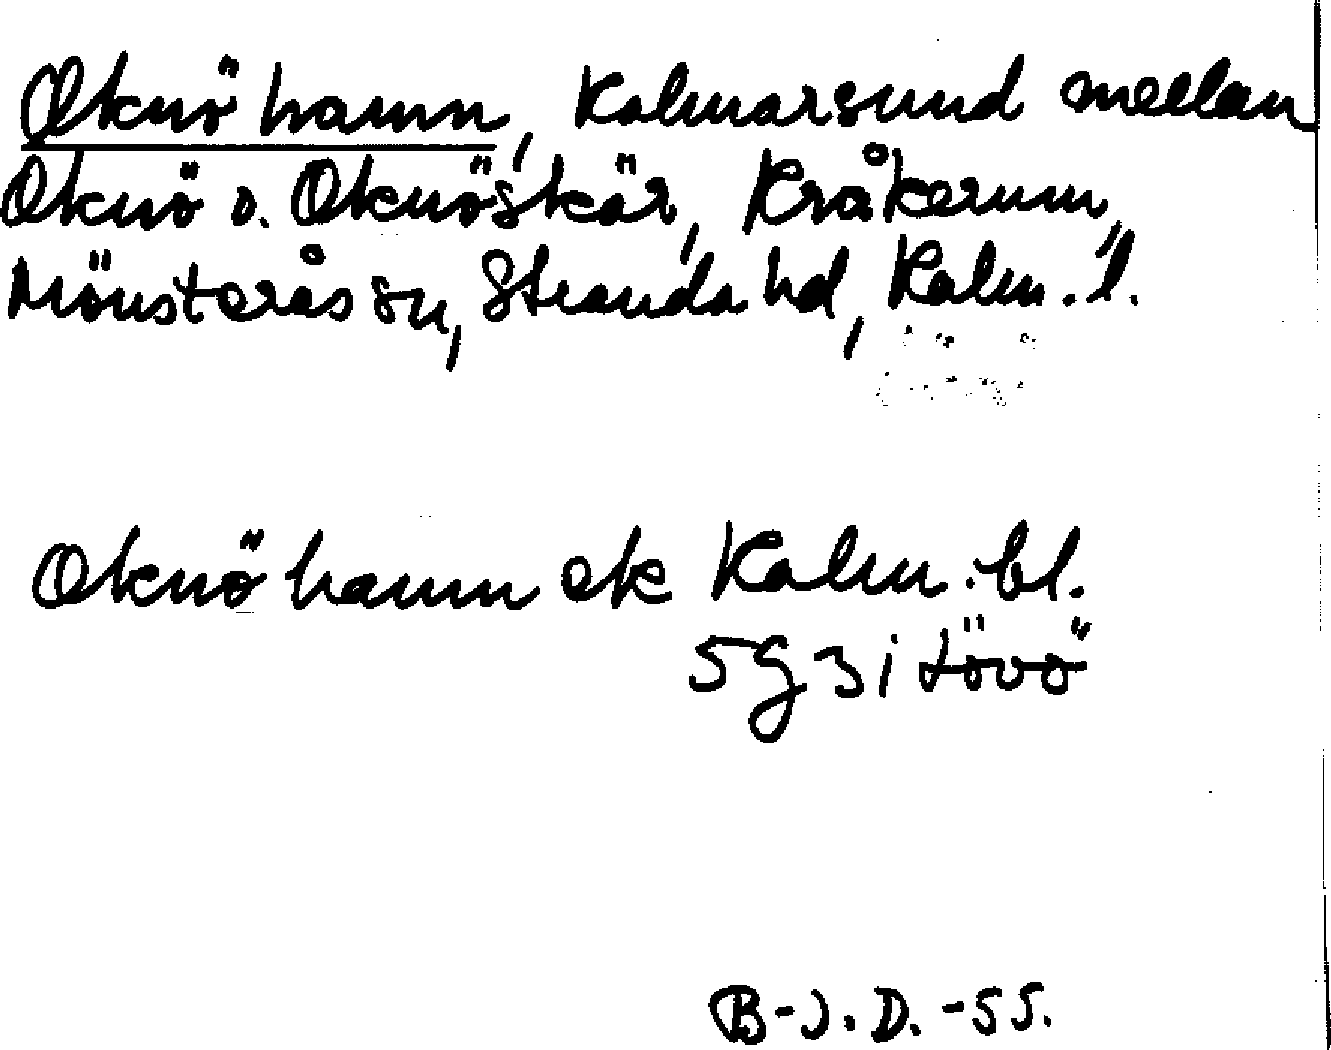 Oknö hamn, Kalmarsund mellan
Oknö o. Oknöskär, Kråkerum,
Mönsterås sn, Stranda hd, Kalm. l.
Oknö hamn ek Kalm. bl.
5g3i tövö
B-J. D. -55.